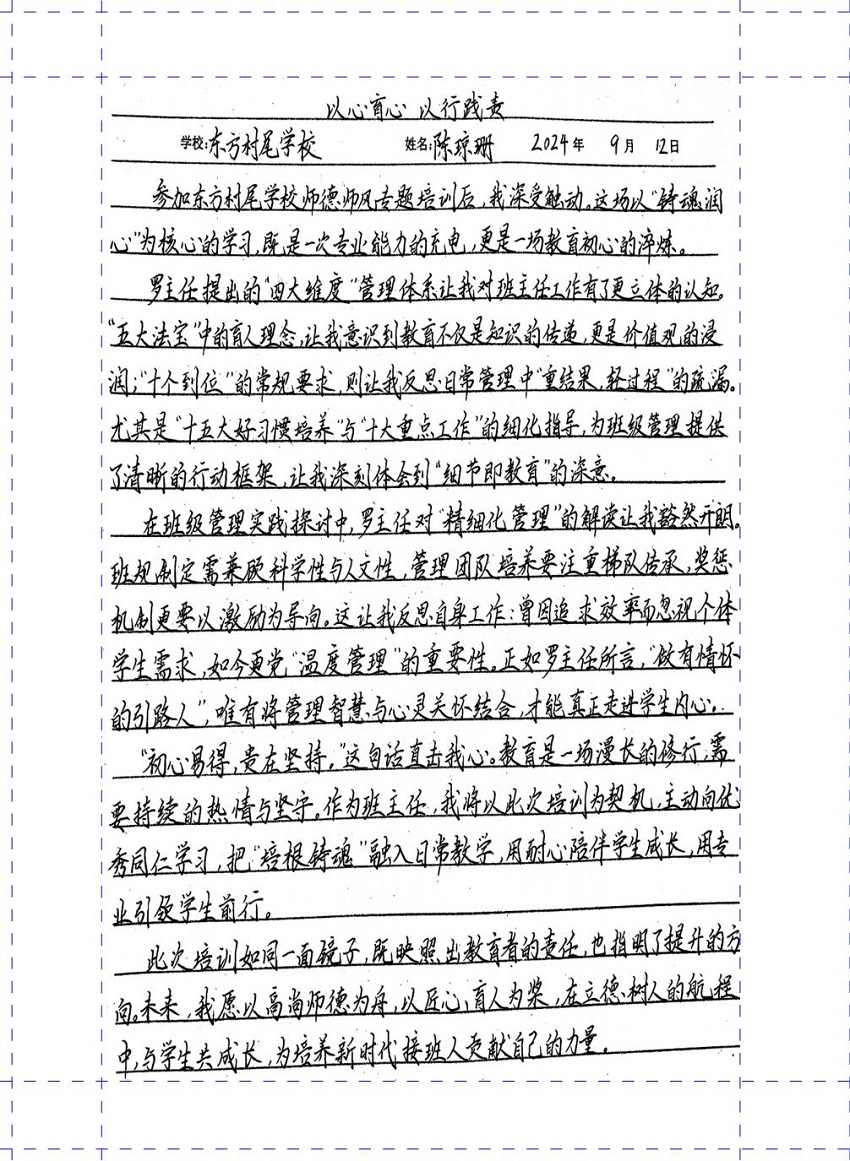 以心育心 以行践责
学校:东方村尾学校 姓名:陈琼珊 2024年 9月 12日
参加东方村尾学校师德师风专题培训后,我深受触动。这场以“铸魂润
心”为核心的学习,既是一次专业能力的充电,更是一场教育初心的淬炼。
罗主任提出的“四大维度”管理体系让我对班主任工作有了更立体的认知。
“五大法宝”中的育人理念,让我意识到教育不仅是知识的传递,更是价值观的浸
润;“十个到位”的常规要求,则让我反思日常管理中“重结果,轻过程”的疏漏。
尤其是“十五大好习惯培养”与“十大重点工作”的细化指导,为班级管理提供
了清晰的行动框架,让我深刻体会到“细节即教育”的深意。
在班级管理实践探讨中,罗主任对“精细化管理”的解读让我豁然开朗。
班规制定需兼顾科学性与人文性,管理团队培养要注重梯队传承,奖惩
机制更要以激励为导向。这让我反思自身工作:曾因追求效率而忽视个体
学生需求,如今更觉“温度管理”的重要性。正如罗主任所言,“做有情怀
的引路人”,唯有将管理智慧与心灵关怀结合,才能真正走进学生内心。
“初心易得,贵在坚持。”这句话直击我心。教育是一场漫长的修行,需
要持续的热情与坚守。作为班主任,我将以此次培训为契机,主动向优
秀同仁学习,把“培根铸魂”融入日常教学,用耐心陪伴学生成长,用专
业引领学生前行。
此次培训如同一面镜子,既映照出教育者的责任,也指明了提升的方
向。未来,我愿以高尚师德为舟,以匠心育人为桨,在立德树人的航程
中,与学生共成长,为培养新时代接班人贡献自己的力量。